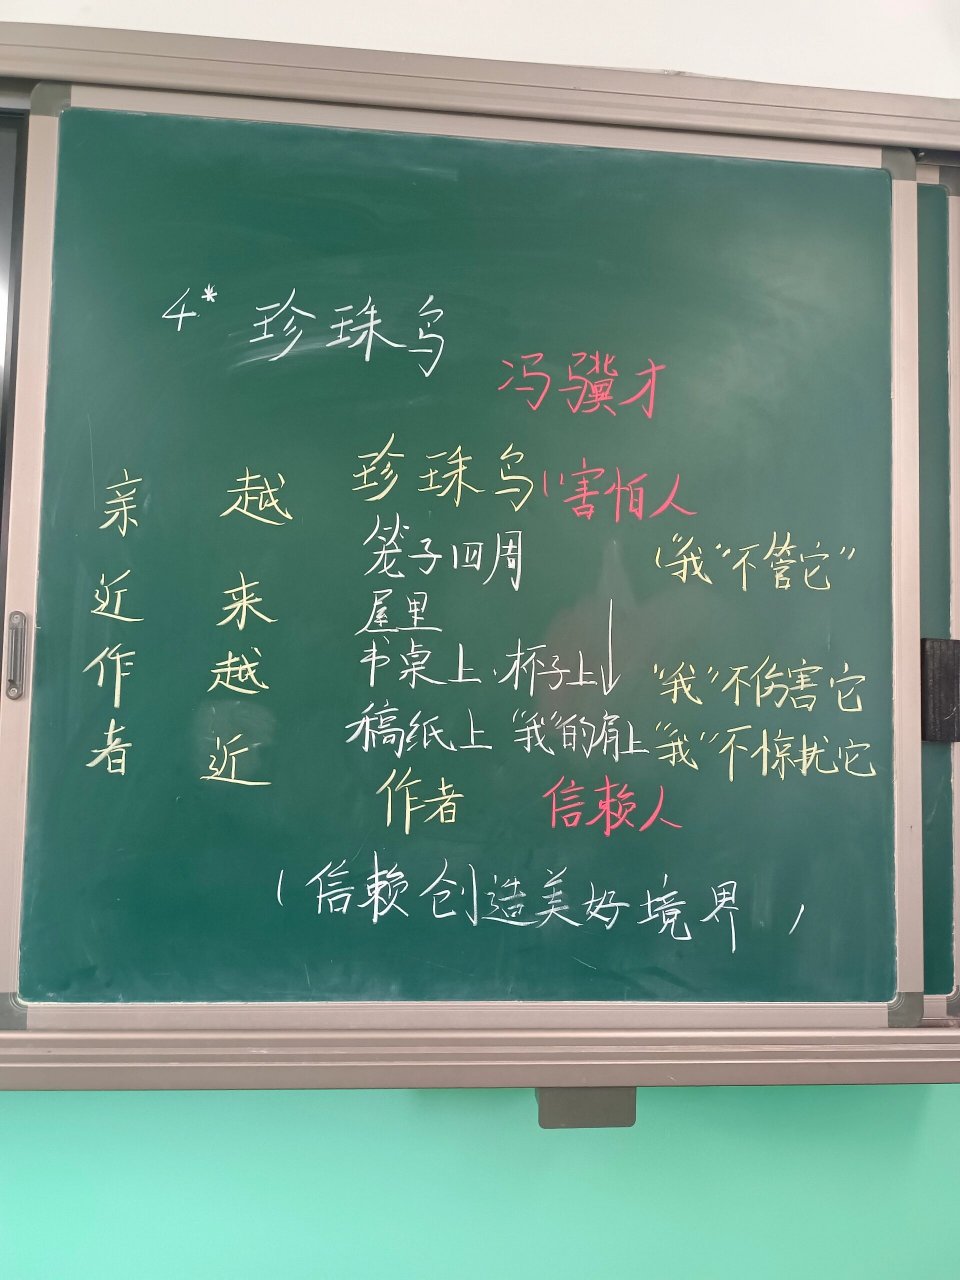 4* 珍珠鸟
冯骥才
亲近作者
越来越近
珍珠鸟（害怕人
笼子四周 （"我"不管它"
屋里
书桌上、杯子上 "我"不伤害它
稿纸上 "我"的肩上 "我"不惊扰它
作者 信赖人
（信赖创造美好境界）